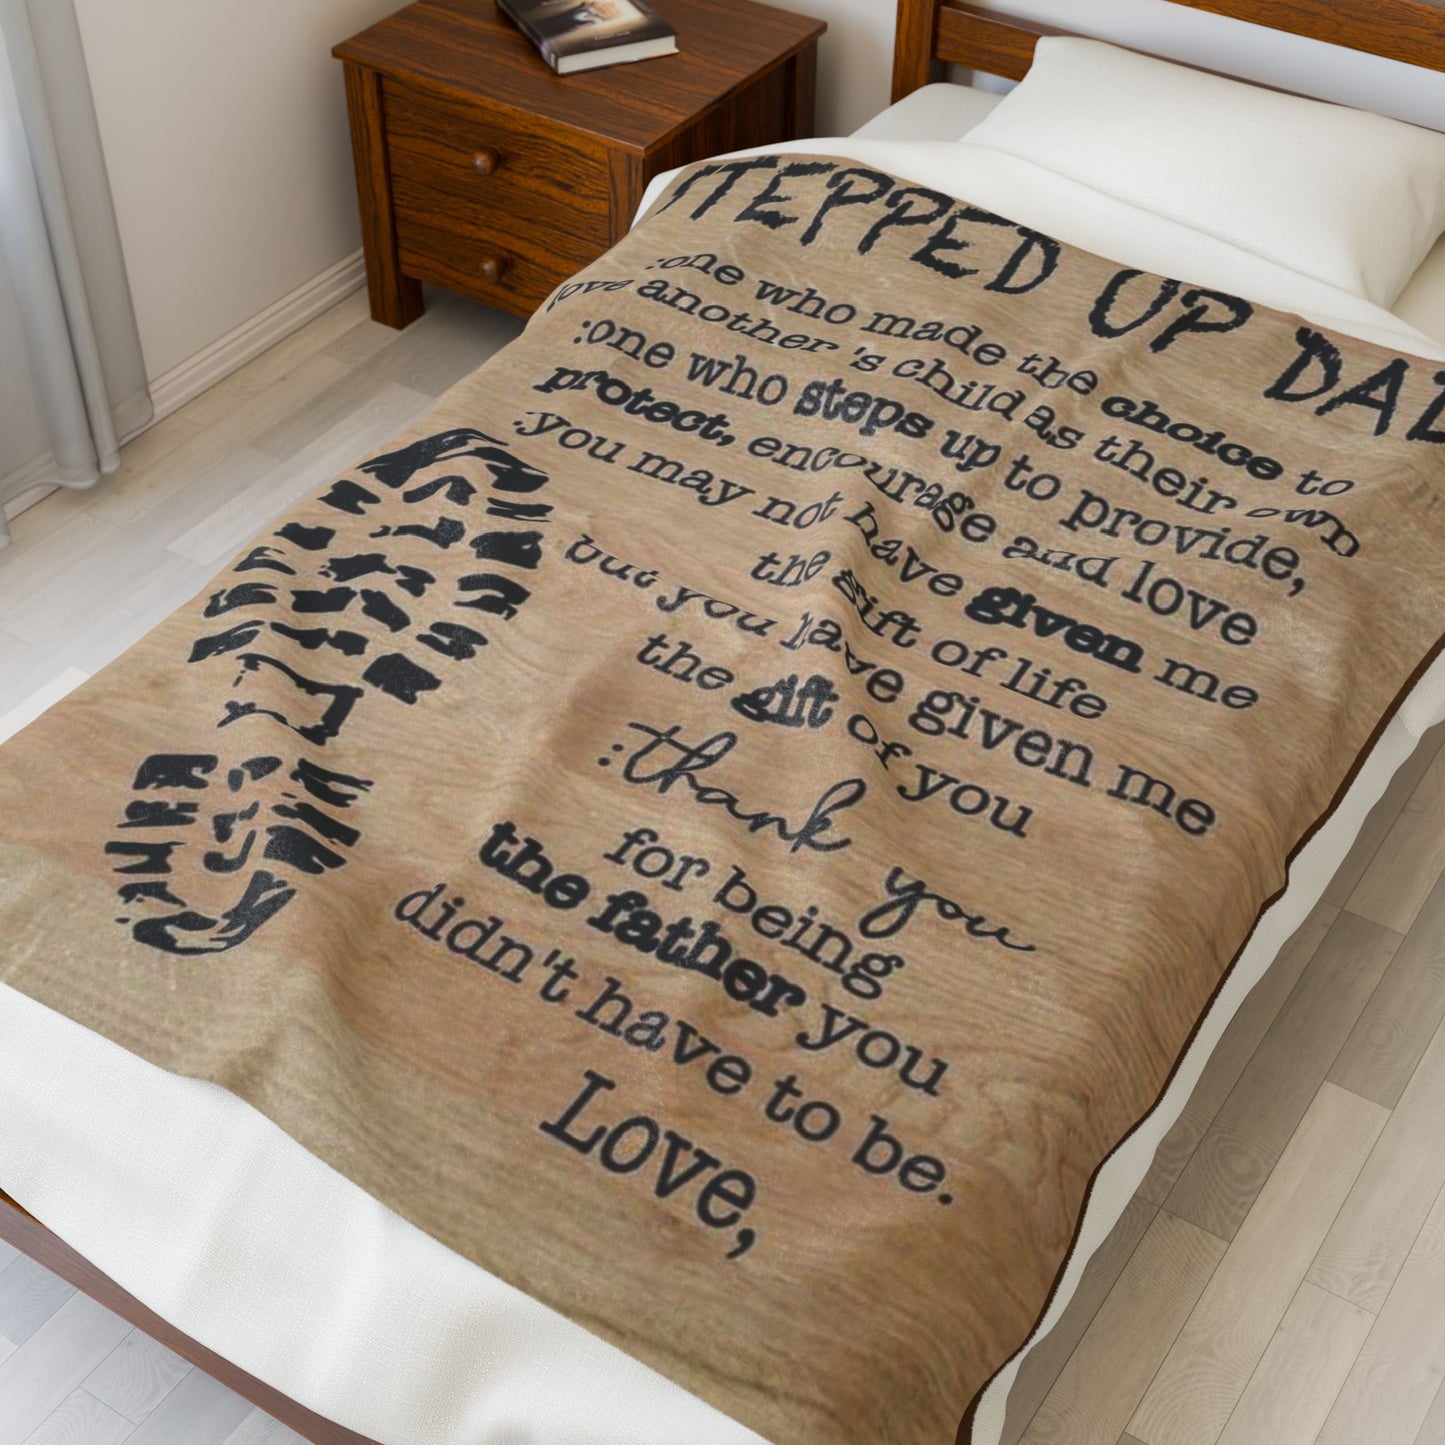 STEPPED UP DAD
:one who made the choice to
love another 's child as their own
:one who steps up to provide,
protect, encourage and love
:you may not have given me
the gift of life
but you have given me
the gift of you
:thank you
for being
the father you
didn't have to be.
Love,